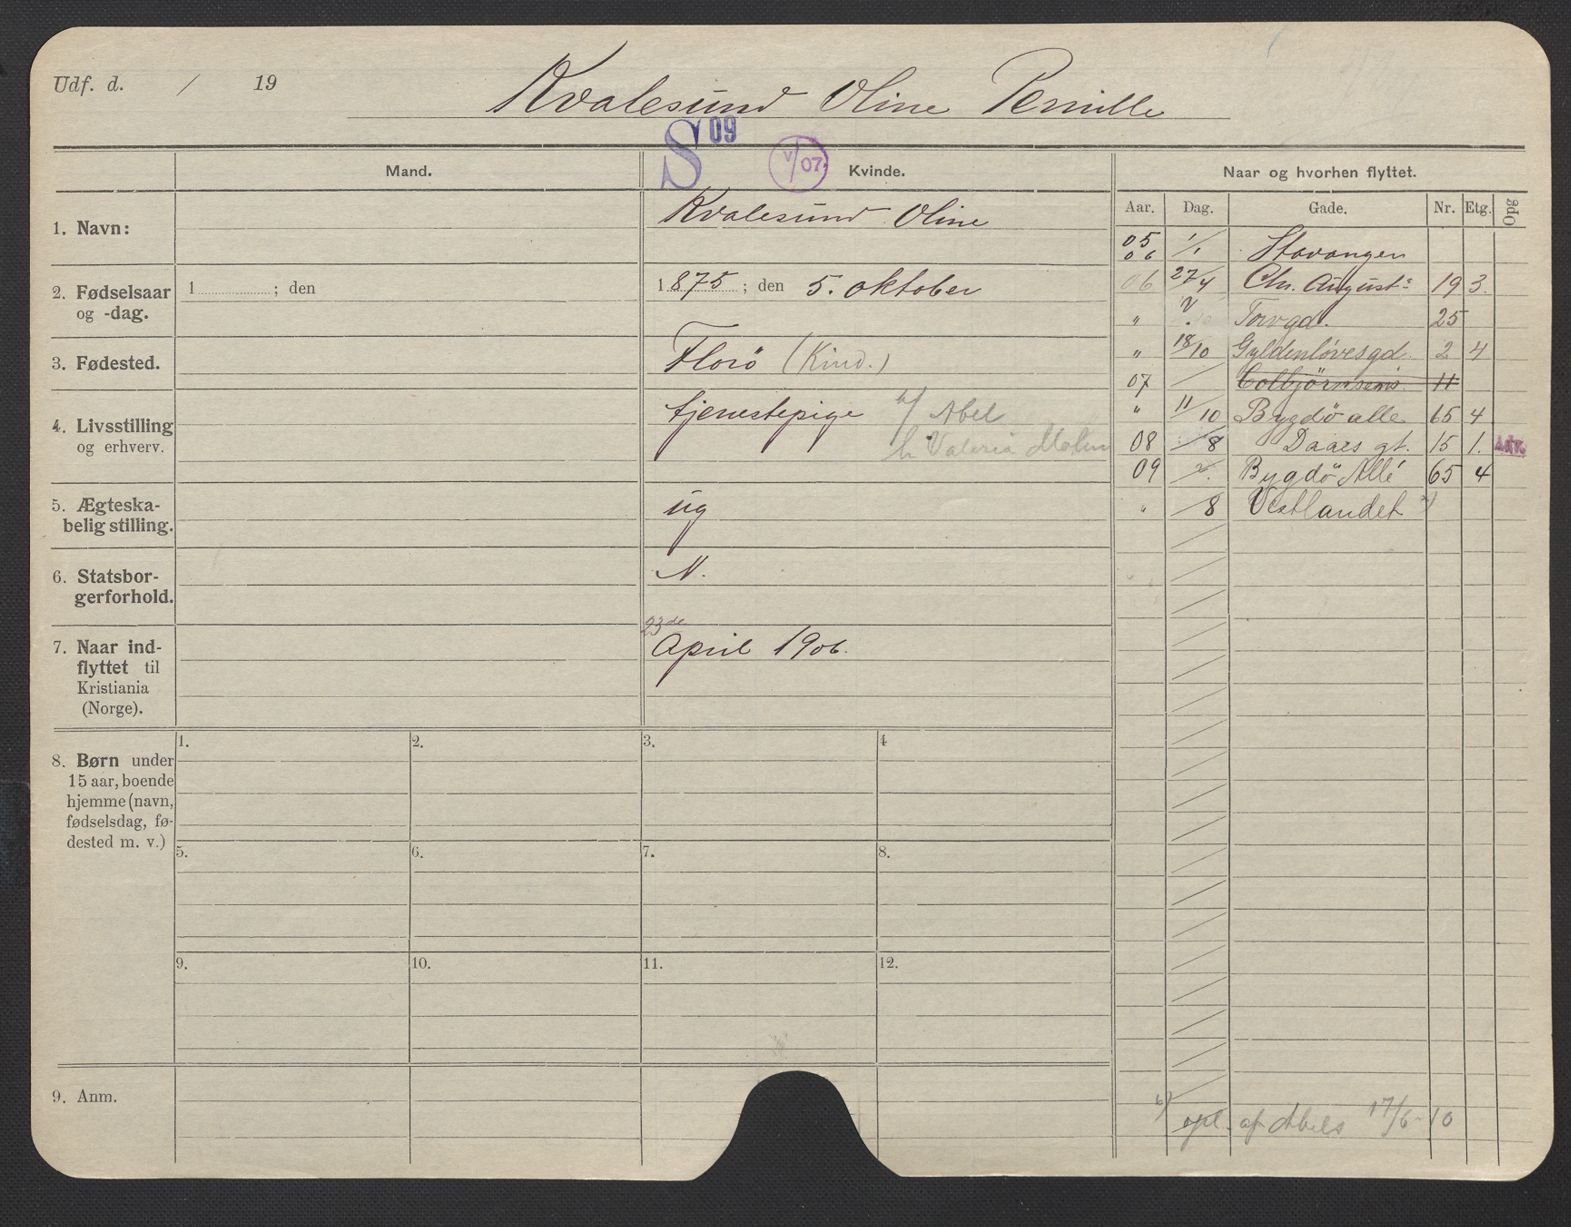 Udf. d. / 19
Kvalesund Oline Pernille
S 09
V/07.
Mand.
Kvinde.
Naar og hvorhen flyttet.
Aar. Dag. Gade. Nr. Etg. Opg
1. Navn:
Kvalesund Oline
2. Fødselsaar
og -dag.
1 ; den
1875 ; den 5. oktober
3. Fødested.
Florø (Kind.)
4. Livsstilling
og erhverv.
tjenestepige
Abel
Valeria
5. Ægteska-
belig stilling.
ug
6. Statsbor-
gerforhold.
N.
7. Naar ind-
flyttet til
Kristiania
(Norge).
23de
April 1906.
05 1/1
06 Stavanger
06 27/4 Chr. August s 19 3.
" Torvgd. 25
" 18/10 Gyldenløvesgd. 2 4
07 / Colbjørnsens 11
" 11/10 Bygdø alle 65 4
08 /8 Daaes gt. 15 1. Adr.
09 Bygdø Allé 65 4
" /8 Vestlandet
8. Børn under
15 aar, boende
hjemme (navn,
fødselsdag, fø-
dested m. v.)
1. 2. 3. 4
5. 6. 7. 8.
9. 10. 11. 12.
9. Anm.
opl. af Abels 17/6-10